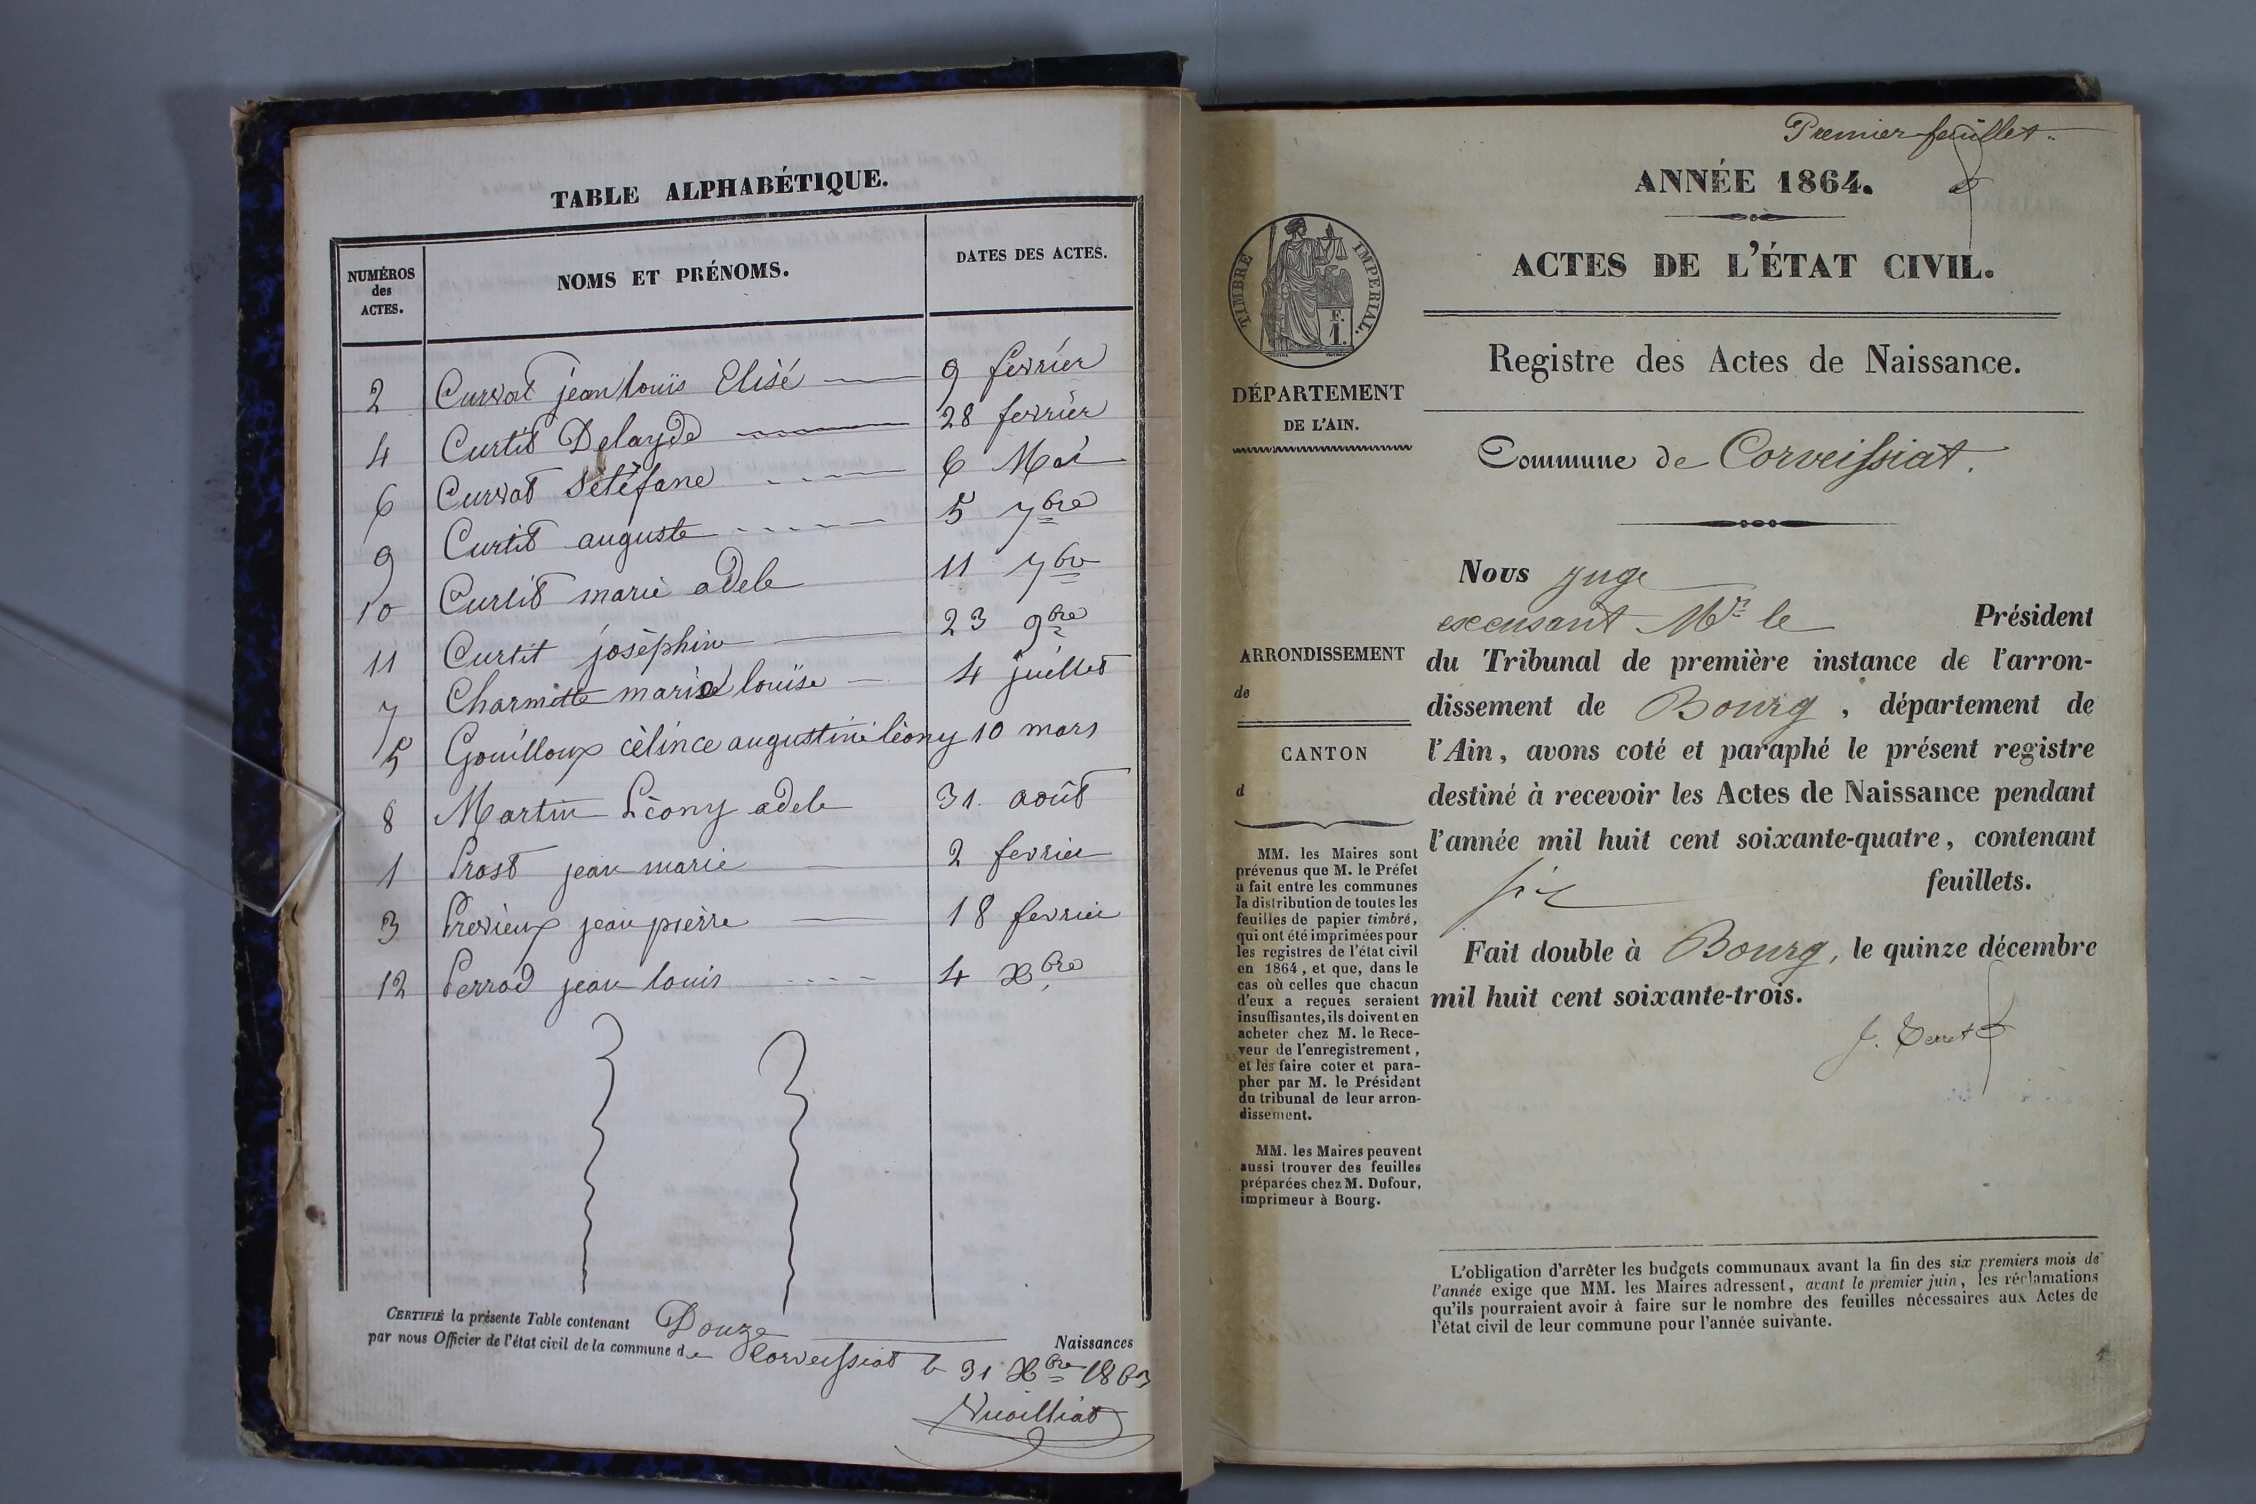 TABLE ALPHABÉTIQUE.
NUMÉROS
des
ACTES.
NOMS ET PRÉNOMS.
DATES DES ACTES.
2 Curvat jean louis Elisé 9 fevrier
4 Curtit Delayde 28 fevrier
6 Curvat Stéfane 6 Mai
9 Curtit auguste 5 7bre
10 Curtit marie adele 11 7bre
11 Curtit joséphine 23 9bre
7 Charmette marie louïse 4 juillet
5 Gouilloux célince augustine léony 10 mars
8 Martin Léony adele 31 août
1 Prost jean marie 2 fevrier
3 Previeux jean pierre 18 fevrier
12 Perrod jean louis 4 Xbre
CERTIFIÉ la présente Table contenant Douze Naissances
par nous Officier de l'état civil de la commune de Corveissiat le 31 Xbre 1863
Vuailliat
Premier feuillet.
ANNÉE 1864.
ACTES DE L'ÉTAT CIVIL.
Registre des Actes de Naissance.
Commune de Corveissiat.
TIMBRE IMPERIAL.
F.
1.
DÉPARTEMENT
DE L'AIN.
ARRONDISSEMENT
de
CANTON
d
MM. les Maires sont
prévenus que M. le Préfet
a fait entre les communes
la distribution de toutes les
feuilles de papier timbré,
qui ont été imprimées pour
les registres de l'état civil
en 1864, et que, dans le
cas où celles que chacun
d'eux a reçues seraient
insuffisantes, ils doivent en
acheter chez M. le Rece-
veur de l'enregistrement,
et les faire coter et para-
pher par M. le Président
du tribunal de leur arron-
dissement.
MM. les Maires peuvent
aussi trouver des feuilles
préparées chez M. Dufour,
imprimeur à Bourg.
Nous juge
excusant Mr le Président
du Tribunal de première instance de l'arron-
dissement de Bourg, département de
l'Ain, avons coté et paraphé le présent registre
destiné à recevoir les Actes de Naissance pendant
l'année mil huit cent soixante-quatre, contenant
six feuillets.
Fait double à Bourg, le quinze décembre
mil huit cent soixante-trois.
L'obligation d'arrêter les budgets communaux avant la fin des six premiers mois de
l'année exige que MM. les Maires adressent, avant le premier juin, les réclamations
qu'ils pourraient avoir à faire sur le nombre des feuilles nécessaires aux Actes de
l'état civil de leur commune pour l'année suivante.